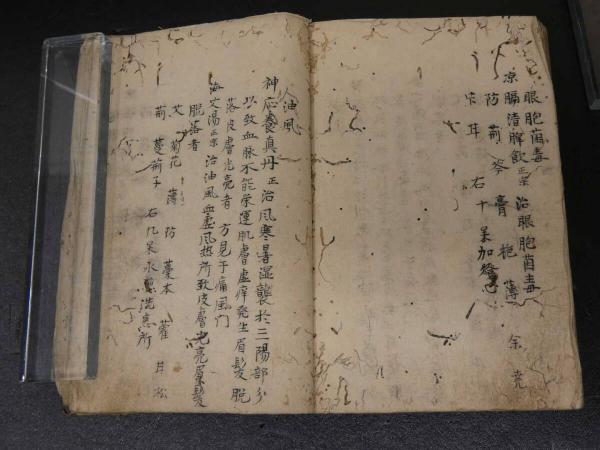 眼胞菌毒
凉膈清脾飲 正宗 治眼胞菌毒
防 荊 芩 膏 梔 薄
右十味加燈心
油風
神応養真丹 正 治風寒暑湿襲於三陽部分
以致血脉不能栄運肌膚虚痒発生眉髪脱
落皮膚光亮者 方見于痛風門
海艾湯 正宗 治油風血虚風熱所致皮膚光亮眉髪
脱落者
艾 菊花 薄 防 藁本 藿 甘松
荊 蔓荊子 右九味水煎洗患所